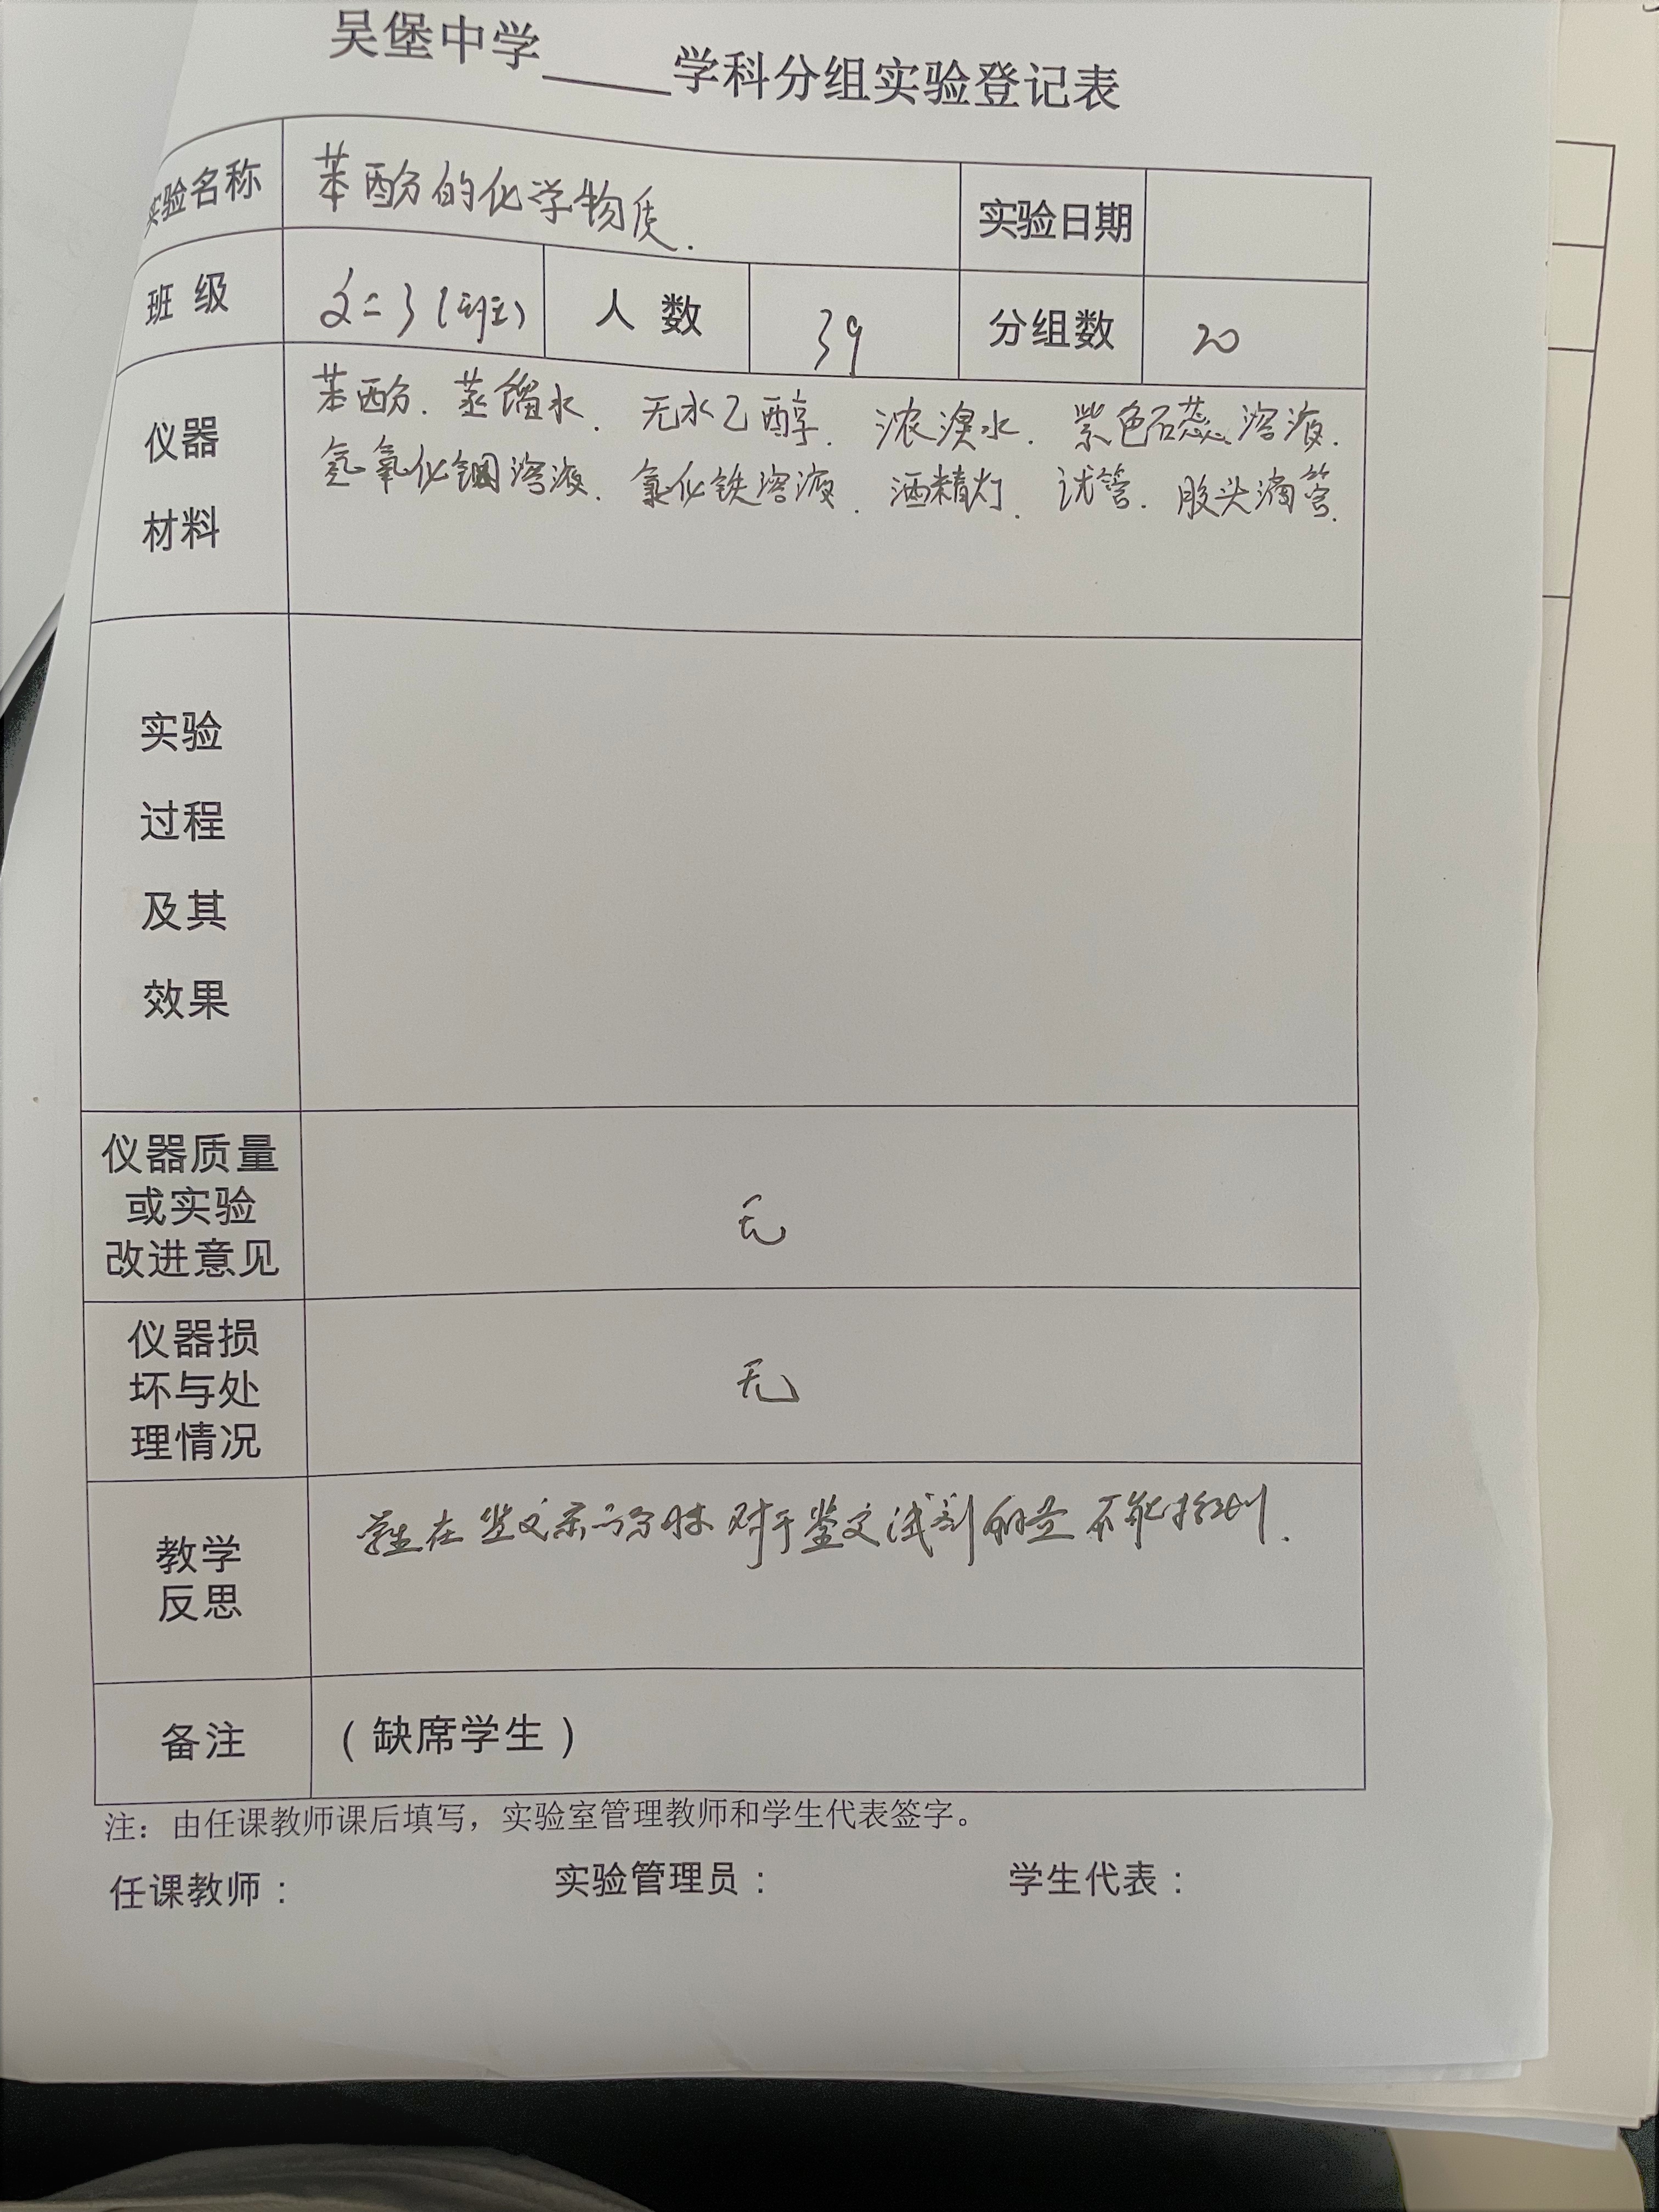 吴堡中学____学科分组实验登记表
实验名称 苯酚的化学物质. 实验日期
班级 人数 39 分组数 20
仪器材料
苯酚. 蒸馏水. 无水乙醇. 浓溴水. 紫色石蕊溶液.
氢氧化钠溶液. 氯化铁溶液. 酒精灯. 试管. 胶头滴管.
实验
过程
及其
效果
仪器质量
或实验
改进意见
无
仪器损
坏与处
理情况
无
教学
反思
学生在 对于鉴 试剂的量不能控制.
备注 (缺席学生)
注：由任课教师课后填写，实验室管理教师和学生代表签字。
任课教师： 实验管理员： 学生代表：